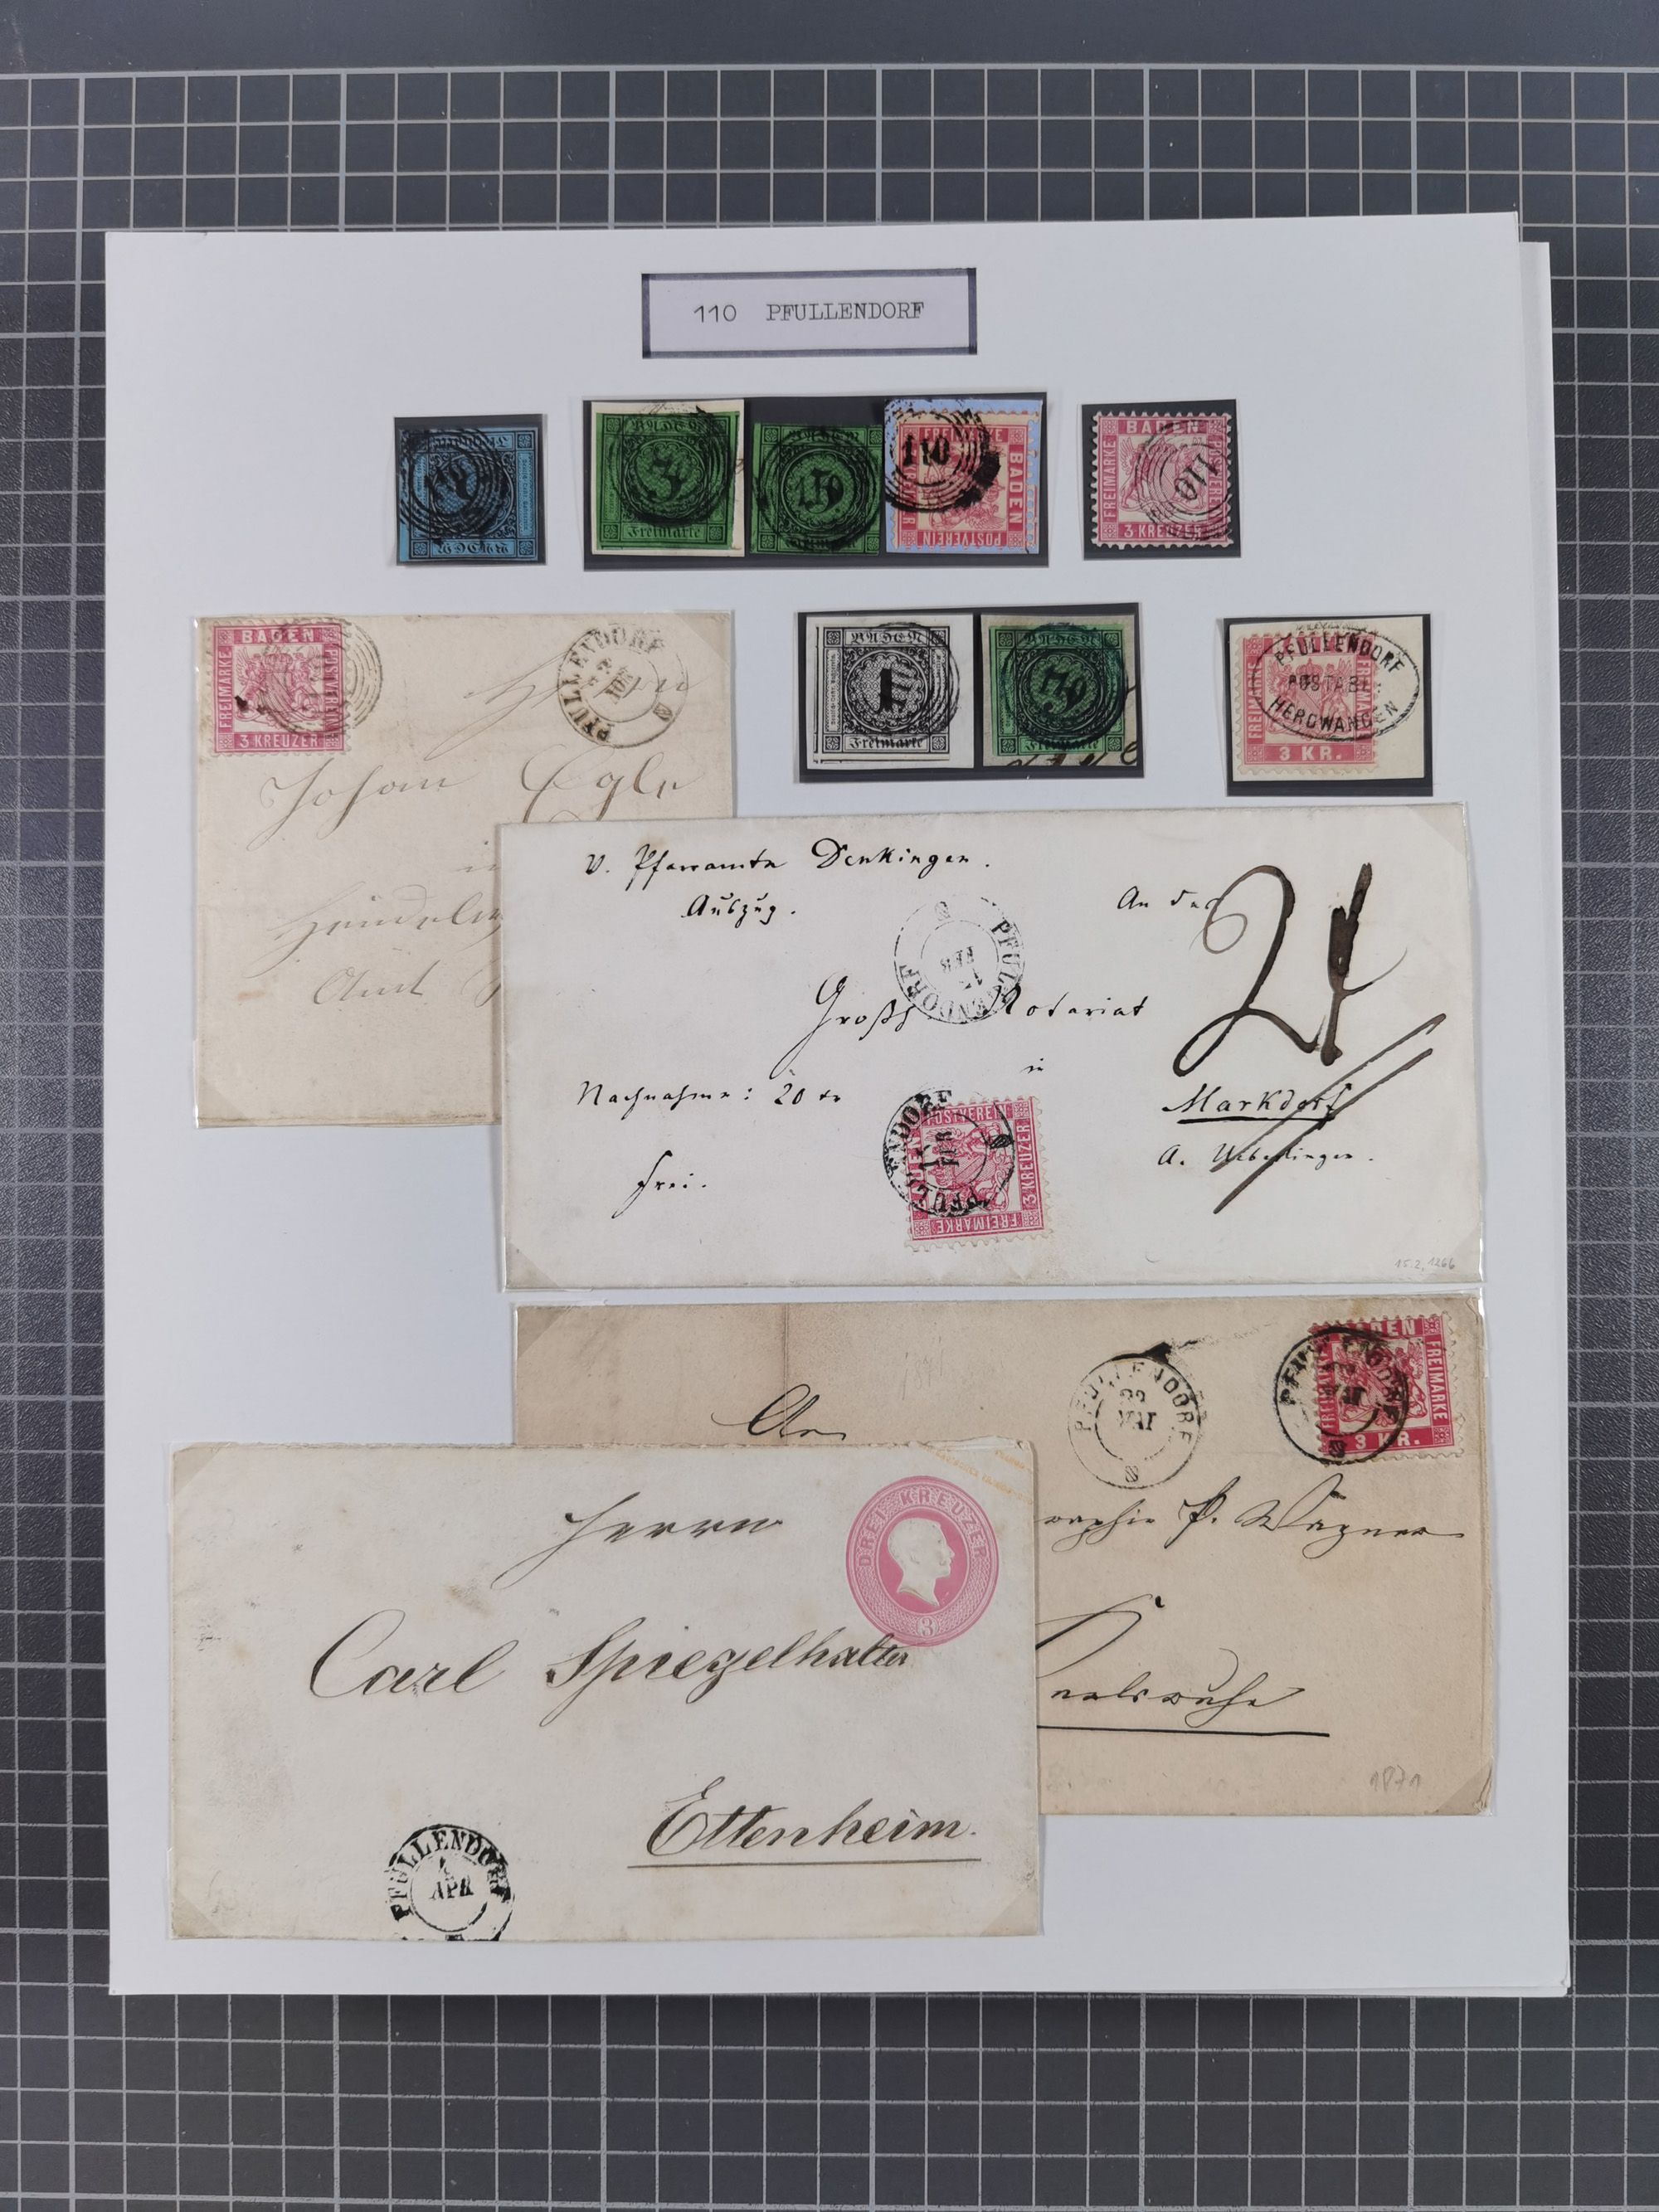 110 PFULLENDORF
BADEN
Freimarke
110
FREIMARKE
BADEN
POSTVEREIN
BADEN
FREIMARKE
POSTVEREIN
3 KREUZER
110
BADEN
FREIMARKE
POSTVEREIN
3 KREUZER
PFULLENDORF
BADEN
1
Freimarke
BADEN
Freimarke
PFULLENDORF
POSTABL.
HERDWANGEN
FREIMARKE
3 KR.
Herrn
Johann Egle
in
Amt
V. Pfarramte Denkingen.
Auszug.
An das
PFULLENDORF
15
FEB
Großh Notariat
in
Nachnahme: 20 xr
Markdorf
A. Ueberlingen.
frei.
PFULLENDORF
15
FEB
POSTVEREIN
3 KREUZER
FREIMARKE
15.2.1866
An
PFULLENDORF
22
MAI
PFULLENDORF
MAI
BADEN
FREIMARKE
3 KR.
P. Wagner
1871
Herrn
DREI KREUZER
3
Carl Spiegelhalter
Ettenheim.
PFULLENDORF
4
APR